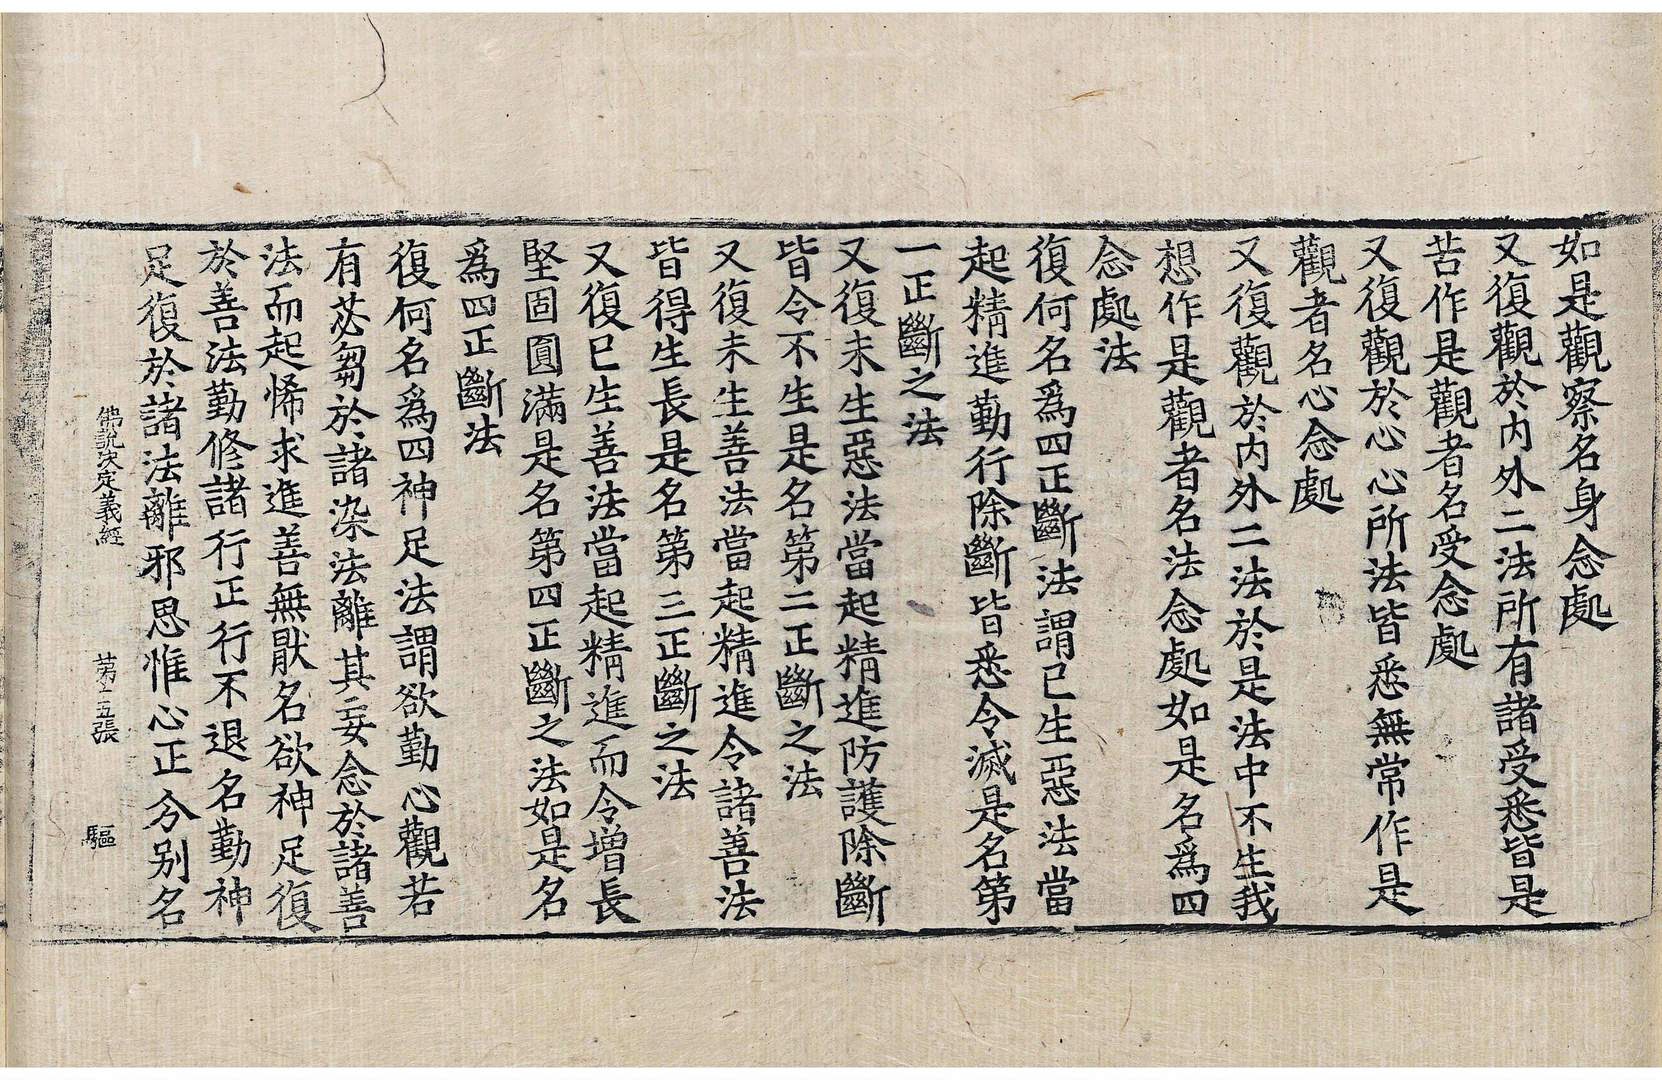 如是觀察名身念處
又復觀於內外二法所有諸受悉皆是
苦作是觀者名受念處
又復觀於心心所法皆悉無常作是
觀者名心念處
又復觀於內外二法於是法中不生我
想作是觀者名法念處如是名爲四
念處法
復何名爲四正斷法謂已生惡法當
起精進勤行除斷皆悉令滅是名第
一正斷之法
又復未生惡法當起精進防護除斷
皆令不生是名第二正斷之法
又復未生善法當起精進令諸善法
皆得生長是名第三正斷之法
又復已生善法當起精進而令增長
堅固圓滿是名第四正斷之法如是名
爲四正斷法
復何名爲四神足法謂欲勤心觀若
有苾芻於諸染法離其妄念於諸善
法而起悕求進善無猒名欲神足復
於善法勤修諸行正行不退名勤神
足復於諸法離邪思惟心正分別名
佛說決定義經 第十五張 驅